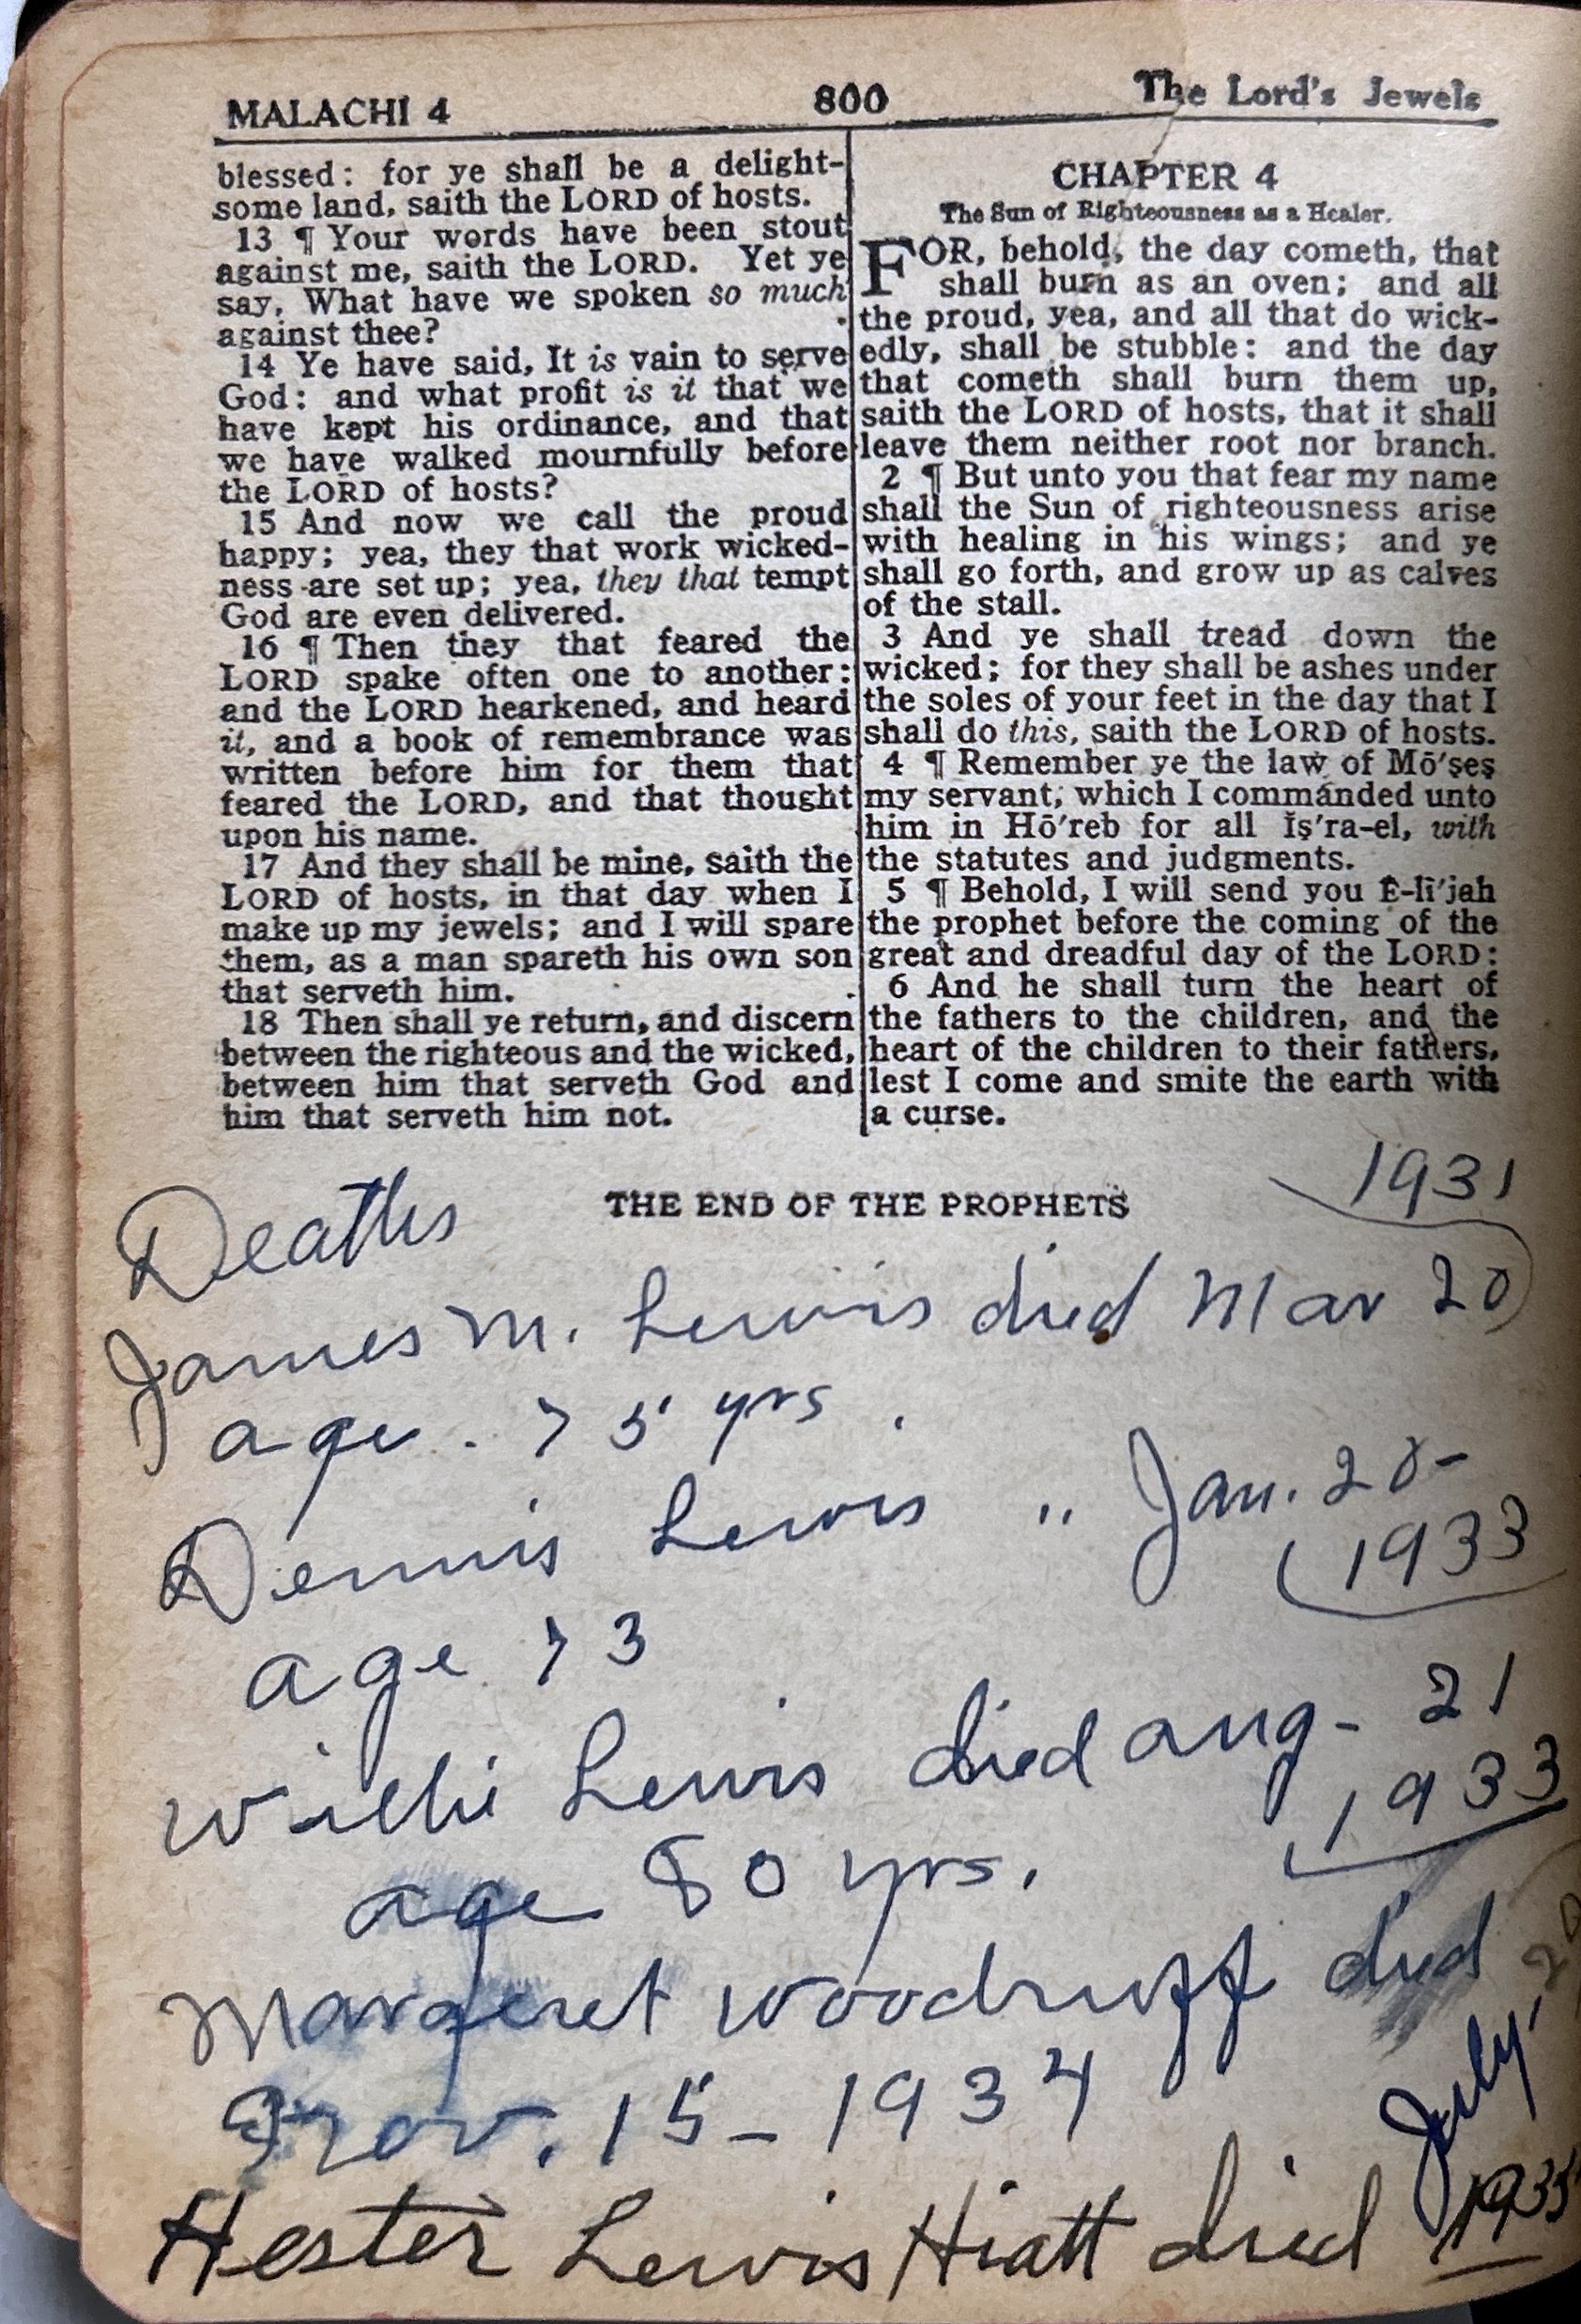 MALACHI 4 800 The Lord's Jewels
blessed: for ye shall be a delight-
some land, saith the LORD of hosts.
13 ¶ Your words have been stout
against me, saith the LORD. Yet ye
say, What have we spoken so much
against thee?
14 Ye have said, It is vain to serve
God: and what profit is it that we
have kept his ordinance, and that
we have walked mournfully before
the LORD of hosts?
15 And now we call the proud
happy; yea, they that work wicked-
ness are set up; yea, they that tempt
God are even delivered.
16 ¶ Then they that feared the
LORD spake often one to another:
and the LORD hearkened, and heard
it, and a book of remembrance was
written before him for them that
feared the LORD, and that thought
upon his name.
17 And they shall be mine, saith the
LORD of hosts, in that day when I
make up my jewels; and I will spare
them, as a man spareth his own son
that serveth him.
18 Then shall ye return, and discern
between the righteous and the wicked,
between him that serveth God and
him that serveth him not.
CHAPTER 4
The Sun of Righteousness as a Healer.
FOR, behold, the day cometh, that
shall burn as an oven; and all
the proud, yea, and all that do wick-
edly, shall be stubble: and the day
that cometh shall burn them up,
saith the LORD of hosts, that it shall
leave them neither root nor branch.
2 ¶ But unto you that fear my name
shall the Sun of righteousness arise
with healing in his wings; and ye
shall go forth, and grow up as calves
of the stall.
3 And ye shall tread down the
wicked; for they shall be ashes under
the soles of your feet in the day that I
shall do this, saith the LORD of hosts.
4 ¶ Remember ye the law of Mō′ṣeṣ
my servant, which I commanded unto
him in Hō′reb for all Ĭṣ′ra-el, with
the statutes and judgments.
5 ¶ Behold, I will send you Ē-lī′jah
the prophet before the coming of the
great and dreadful day of the LORD:
6 And he shall turn the heart of
the fathers to the children, and the
heart of the children to their fathers,
lest I come and smite the earth with
a curse.
THE END OF THE PROPHETS
Deaths 1931
James M. Lewis died Mar 20
age. 75 yrs.
Dennis Lewis " Jan. 20-
1933
age 73
Willie Lewis died aug- 21
1933
age 80 yrs.
Margeret Woodruff died
Nov. 15-1934
Hester Lewis Hiatt died July
1935